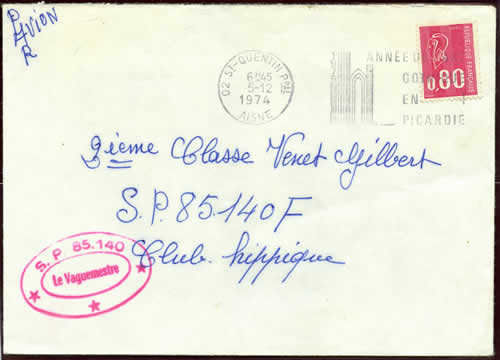 PAR AVION
02 ST-QUENTIN PPAL
6H45
5-12
1974
AISNE
ANNÉE D
GOT
EN
PICARDIE
REPUBLIQUE FRANÇAISE
0,80
2ième Classe Venet Gilbert
S.P. 85.140 F
Club hippique
S. P. 85.140
Le Vaguemestre